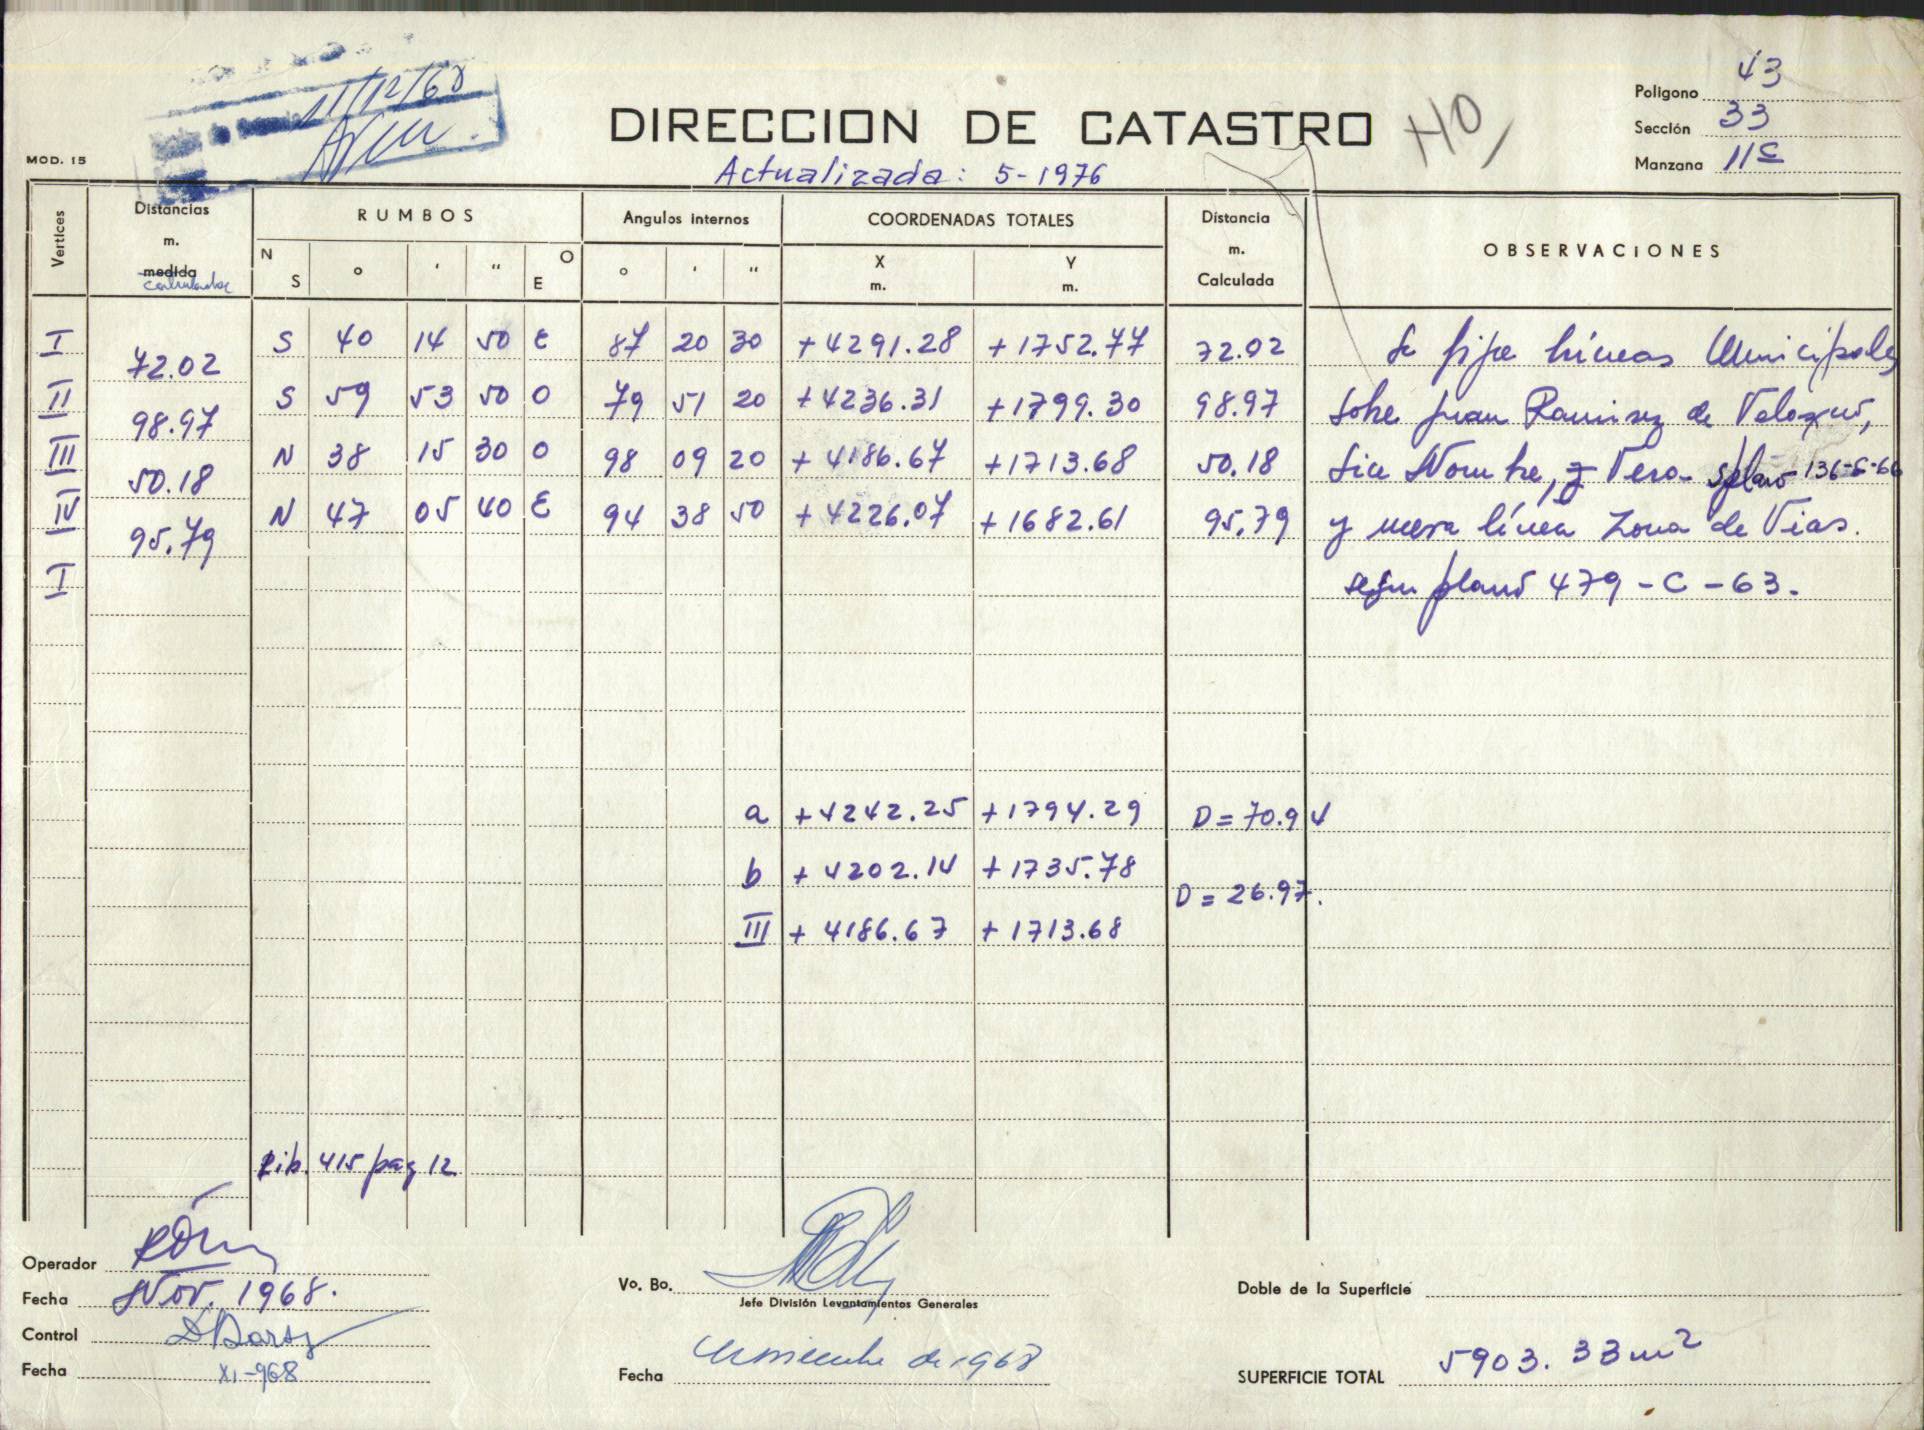 11/12/68
DIRECCION DE CATASTRO
HO,
Poligono 43
Sección 33
Manzana 11S
MOD. 15
Actualizada: 5-1976
Vertices Distancias m. medida calculadas RUMBOS Angulos internos COORDENADAS TOTALES Distancia m. Calculada OBSERVACIONES
N S ° ' " O E ° ' " X m. Y m.
I S 40 14 50 E 87 20 30 +4291.28 +1752.77 72.02 Se fija líneas Municipales
72.02
II S 59 53 50 O 79 51 20 +4236.31 +1799.30 98.97 sobre Juan Ramirez de Velazco,
98.97
III N 38 15 30 O 98 09 20 +4186.67 +1713.68 50.18 Sin Nombre, y Vera s/plano 136-C-66
50.18
IV N 47 05 40 E 94 38 50 +4226.07 +1682.61 95.79 y nueva línea Zona de Vías.
95.79
I según plano 479-C-63.
a +4242.25 +1794.29 D=70.94
b +4202.14 +1735.78
D=26.97.
III +4186.67 +1713.68
Lib. 415 pag 12
Operador
Fecha Nov. 1968.
Control
Fecha XI-968
Vo. Bo.
Jefe División Levantamientos Generales
Fecha de 1968
Doble de la Superficie
SUPERFICIE TOTAL 5903.33 m2